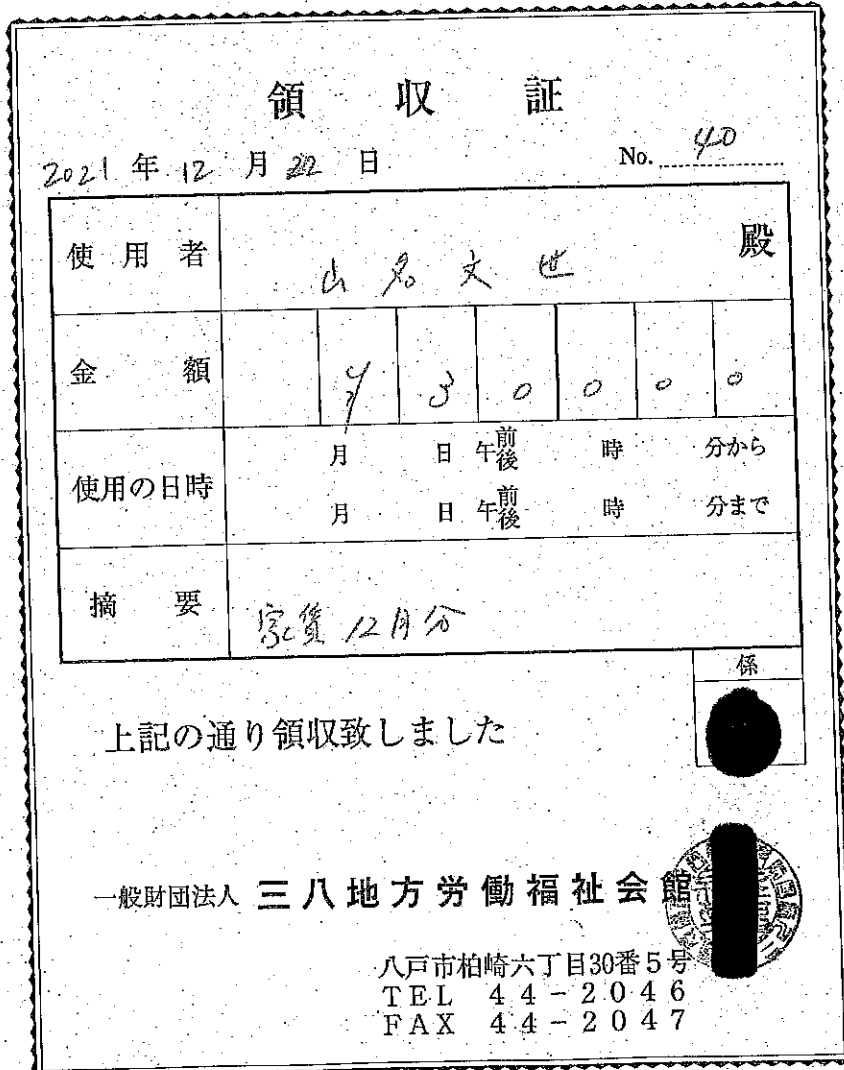 領収証
2021年12月22日 No.40
使用者 山名文世 殿
金額 ¥30000
使用の日時 月 日 午前後 時 分から
月 日 午前後 時 分まで
摘要 家賃12月分
係
上記の通り領収致しました
一般財団法人 三八地方労働福祉会館
八戸市柏崎六丁目30番5号
TEL 44-2046
FAX 44-2047